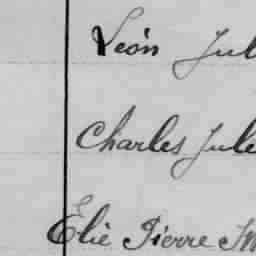 Léon Jul
Charles Jule
Elie Pierre